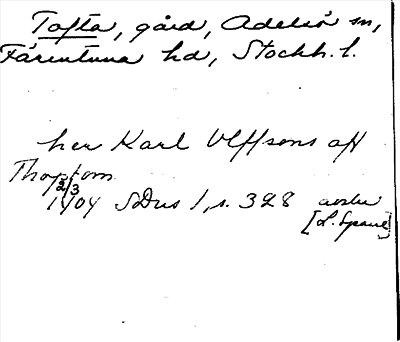 Tofta, gård, Adelsö sn,
Färentuna hd, Stockh. l.
her Karl Vlffsons aff
Thoptom
2/3
1404 SDns 1, s. 328 avskr
[L. Sparre]